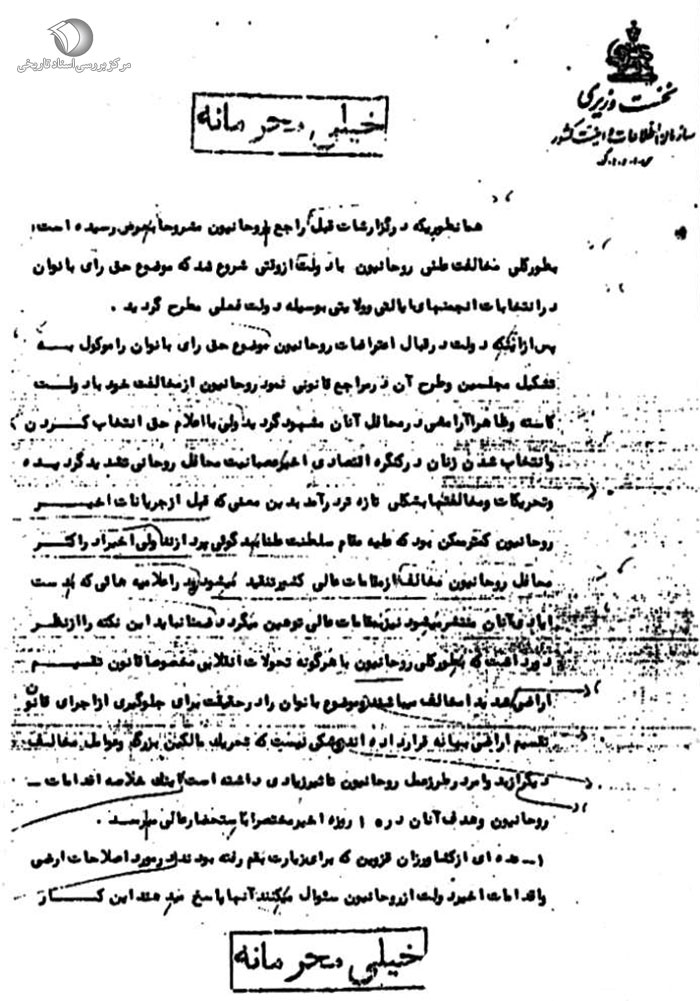 مرکز بررسی اسناد تاریخی
نخست وزیری
سازمان اطلاعات و امنیت کشور
س.ا.و.ا.ک
خیلی محرمانه
همانطوریکه در گزارشات قبل راجع بروحانیون مشروحا بعرض رسیده است:
بطورکلی مخالفت علنی روحانیون با دولت ازوقتی شروع شد که موضوع حق رای بانوان
در انتخابات انجمنهای ایالتی وولایتی بوسیله دولت فعلی مطرح گردید .
پس از اینکه دولت در قبال اعتراضات روحانیون موضوع حق رای بانوان را موکول به
تشکیل مجلسین وطرح آن در مراجع قانونی نمود روحانیون از مخالفت خود با دولت
کاسته وظاهرا آرامشی در محافل آنان مشهود گردید ولی با اعلام حق انتخاب کردن
وانتخاب شدن زنان در کنگره اقتصادی اخیر عصبانیت محافل روحانی تشدید گردیده
وتحریکات ومخالفتها بشکلی تازه تر درآمد بدین معنی که قبل از جریانات اخیر
روحانیون کمتر ممکن بود که علیه مقام سلطنت علنا به بدگوئی بپردازند ولی اخیرا در اکثر
محافل روحانیون مخالف از مقامات عالی کشور تنقید میشود ودر اعلامیه هائی که بدست
ایادی آنان منتشر میشود نیز بمقامات عالی توهین میگردد ضمنا نباید این نکته را از نظر
دور داشت که بطورکلی روحانیون با هرگونه تحولات انقلابی مخصوصا قانون تقسیم -
اراضی شدیدا مخالف میباشند وموضوع بانوان را در حقیقت برای جلوگیری از اجرای قانون
تقسیم اراضی بهانه قرار داده اند وشکی نیست که تحریک مالکین بزرگ وعوامل مخالف
دیگر از بدو امر در طرز عمل روحانیون تاثیر زیادی داشته است اینک خلاصه اقدامات -
روحانیون وهدف آنان در ۱۰ روزه اخیر مختصرا باستحضار عالی میرسد .
۱- عده ای از کشاورزان قزوین که برای زیارت بقم رفته بودند در مورد اصلاحات ارضی
واقدامات اخیر دولت از روحانیون سئوال میکنند آنها پاسخ میدهند این کار
خیلی محرمانه